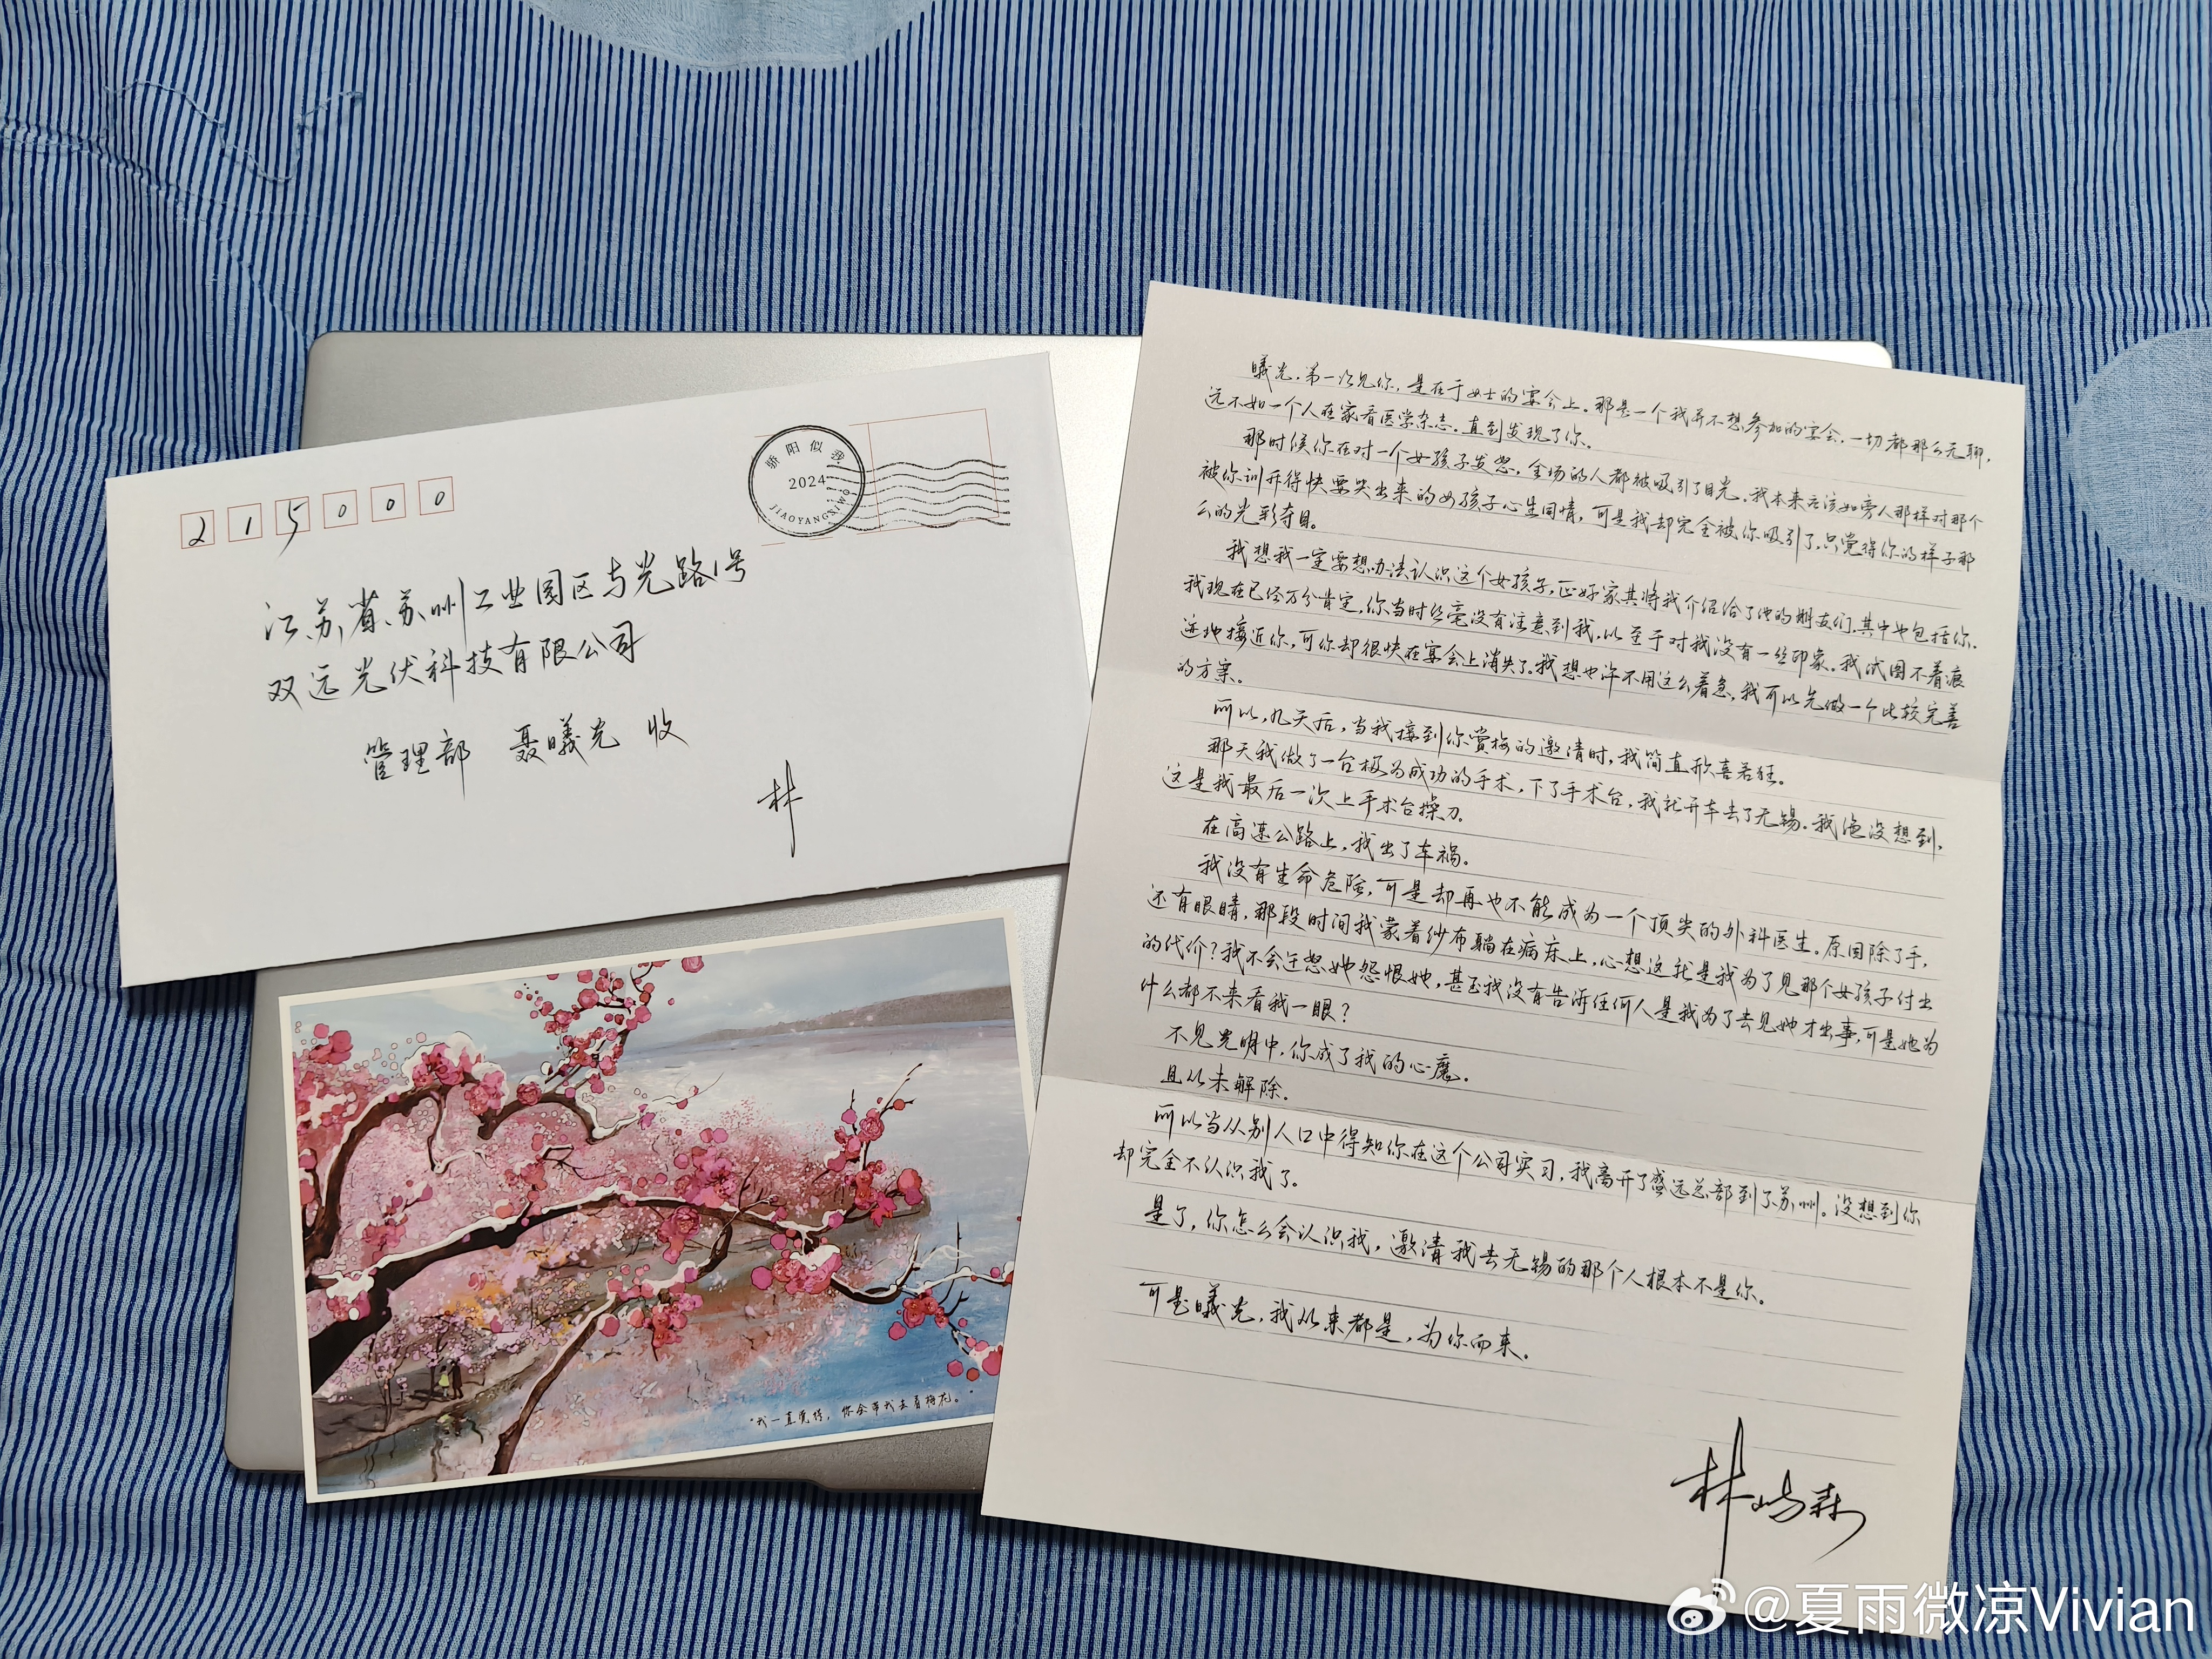 215000
骄阳似我
2024
JIAOYANGSIWO
江苏省苏州工业园区与光路1号
双远光伏科技有限公司
管理部 聂曦光 收
林
"我一直觉得，你会带我去看梅花。"
曦光，第一次见你，是在于女士的宴会上。那是一个我并不想参加的宴会，一切都那么无聊，
远不如一个人在家看医学杂志。直到发现了你。
那时候你在对一个女孩子发怒，全场的人都被吸引了目光，我本来应该如旁人那样对那个
被你训斥得快要哭出来的女孩子心生同情，可是我却完全被你吸引了，只觉得你的样子那
么的光彩夺目。
我想我一定要想办法认识这个女孩子，正好家其将我介绍给了他的朋友们，其中也包括你。
我现在已经万分肯定，你当时丝毫没有注意到我，以至于对我没有一丝印象。我试图不着痕
迹地接近你，可你却很快在宴会上消失了。我想也许不用这么着急，我可以先做一个比较完善
的方案。
所以，几天后，当我接到你赏梅的邀请时，我简直欣喜若狂。
那天我做了一台极为成功的手术，下了手术台，我就开车去了无锡。我绝没想到，
这是我最后一次上手术台操刀。
在高速公路上，我出了车祸。
我没有生命危险，可是却再也不能成为一个顶尖的外科医生。原因除了手，
还有眼睛，那段时间我蒙着纱布躺在病床上，心想这就是我为了见那个女孩子付出
的代价？我不会迁怒她怨恨她，甚至我没有告诉任何人是我为了去见她才出事，可是她为
什么都不来看我一眼？
不见光明中，你成了我的心魔。
且从未解除。
所以当从别人口中得知你在这个公司实习，我离开了盛远总部到了苏州。没想到你
却完全不认识我了。
是了，你怎么会认识我，邀请我去无锡的那个人根本不是你。
可是曦光，我从来都是，为你而来。
林屿森
@夏雨微凉Vivian